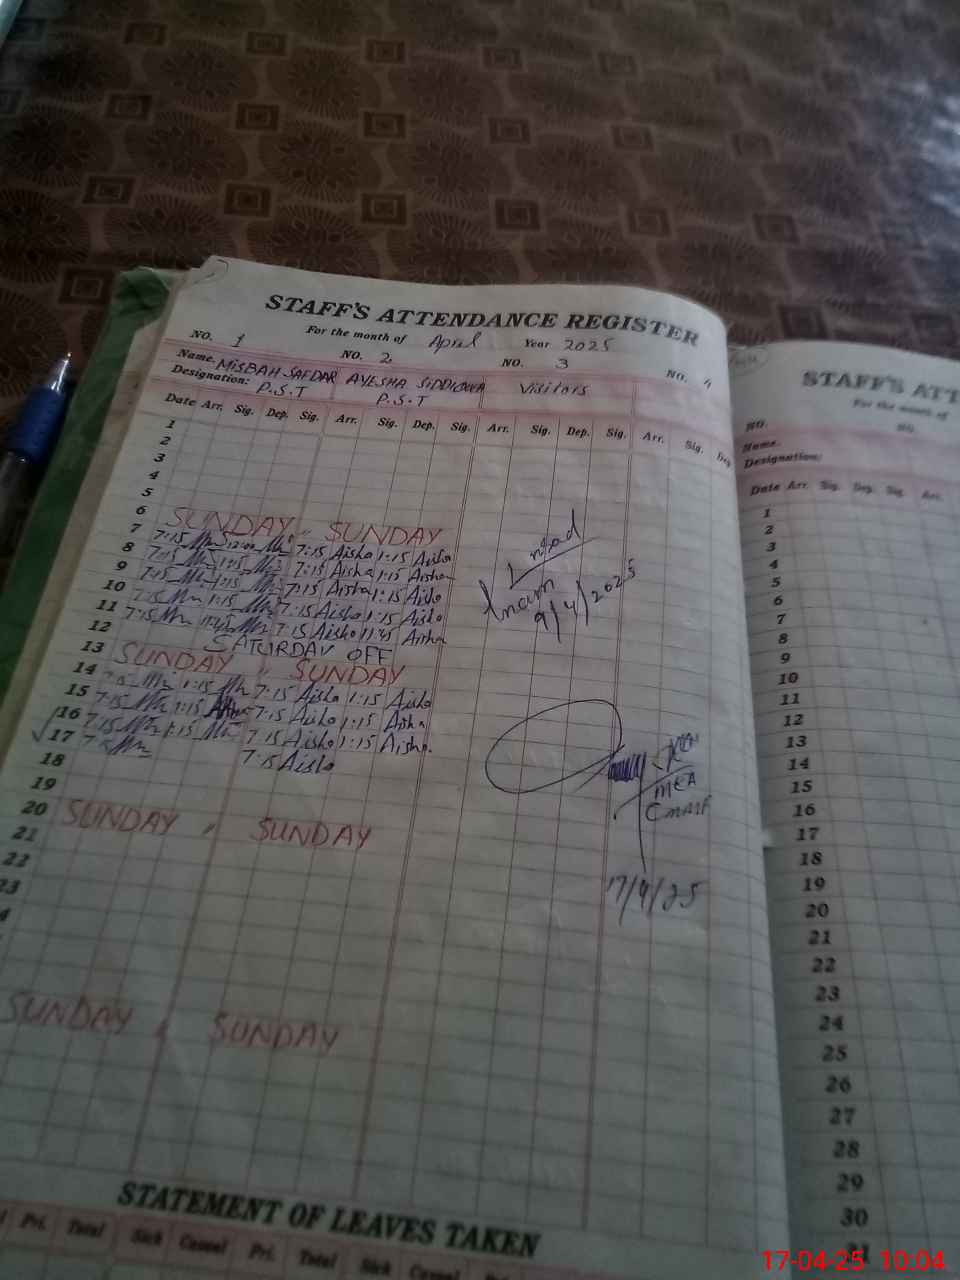 STAFF'S ATTENDANCE REGISTER
For the month of April Year 2025
NO. 1 NO. 2 NO. 3 NO. 4
Name. MISBAH SAFDAR AYESHA SIDDIQUA Visitors
Designation: P.S.T P.S.T
Date Arr. Sig. Dep. Sig. Arr. Sig. Dep. Sig. Arr. Sig. Dep. Sig. Arr. Sig. Dep
1
2
3
4
5
6 SUNDAY " SUNDAY
7 7:15 12:00 7:15 Aisha 1:15 Aisha
8 7:15 1:15 7:15 Aisha 1:15 Aisha
9 7:15 1:15 7:15 Aisha 1:15 Aisha
10 7:15 1:15 7:15 Aisha 1:15 Aisha
11 7:15 11:45 7:15 Aisha 11:45 Aisha
12 SATURDAY OFF
13 SUNDAY " SUNDAY
14 7:15 1:15 7:15 Aisha 1:15 Aisha
15 7:15 1:15 7:15 Aisha 1:15 Aisha
16 7:15 1:15 7:15 Aisha 1:15 Aisha
17 7:15 7:15 Aisha
18
19
20 SUNDAY " SUNDAY
21
22
23
SUNDAY SUNDAY
9/4/2025
MEA
17/4/25
STATEMENT OF LEAVES TAKEN
Pri. Total Sick Casual Pri. Total Sick Casual
STAFF'S ATT
For the month of
NO. NO.
Name.
Designation:
Date Arr. Sig. Dep. Sig. Arr.
1
2
3
4
5
6
7
8
9
10
11
12
13
14
15
16
17
18
19
20
21
22
23
24
25
26
27
28
29
30
31
17-04-25 10:04